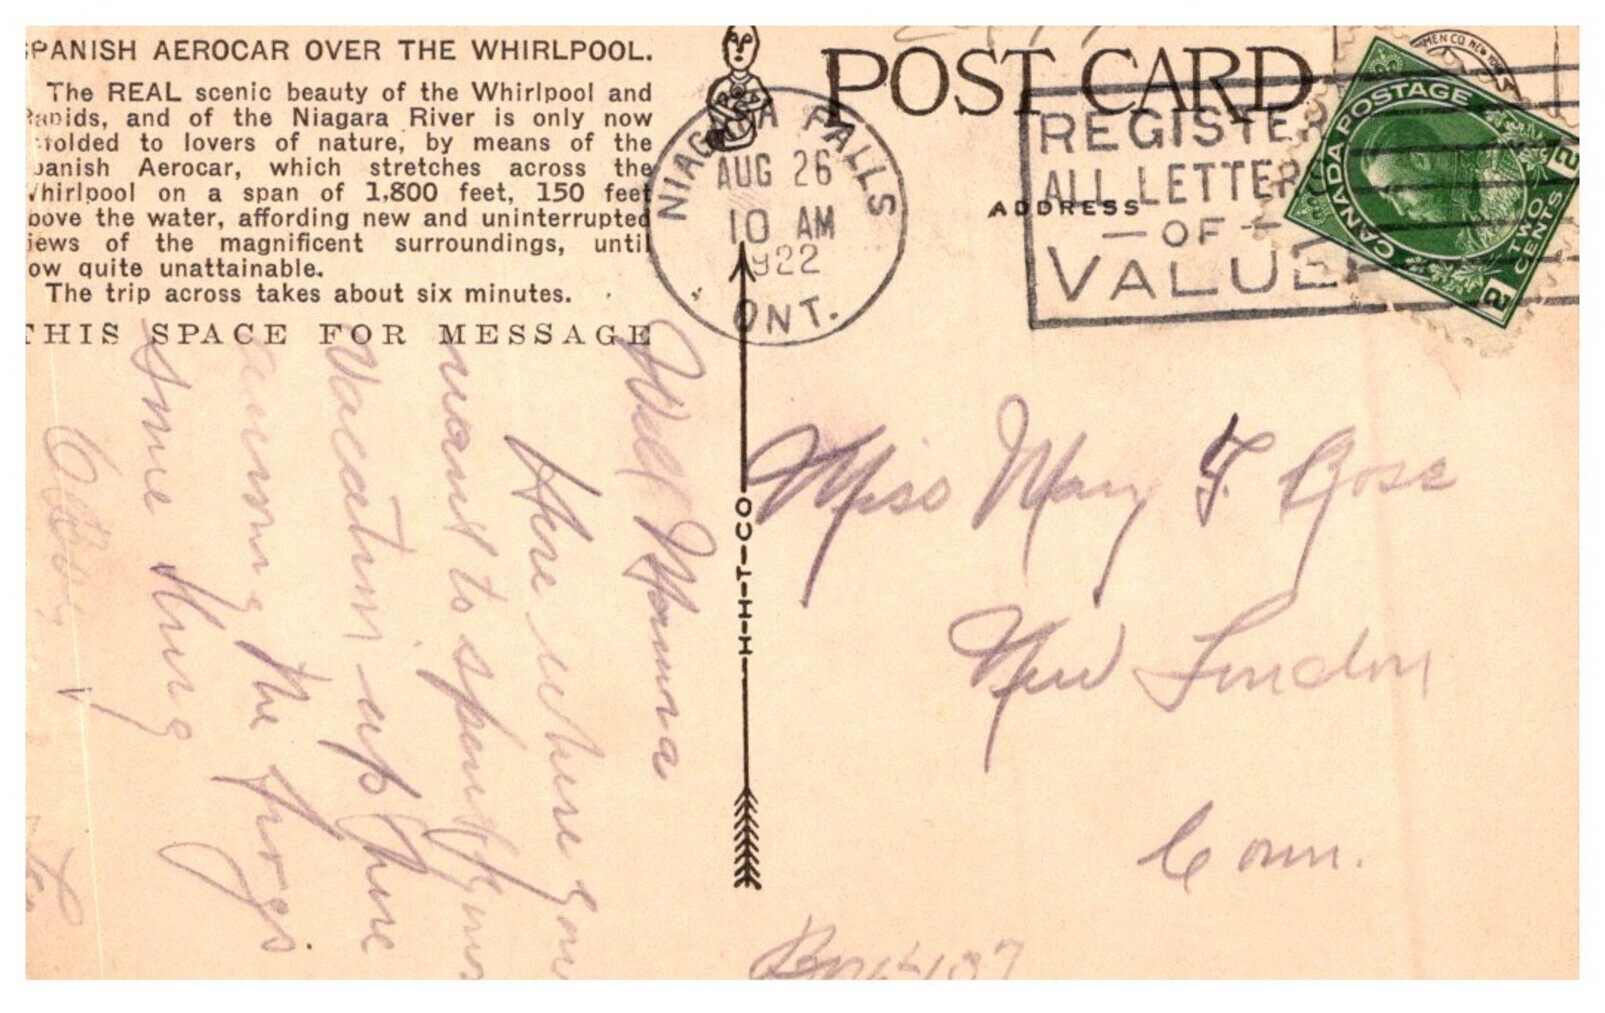 PANISH AEROCAR OVER THE WHIRLPOOL.
The REAL scenic beauty of the Whirlpool and
apids, and of the Niagara River is only now
folded to lovers of nature, by means of the
panish Aerocar, which stretches across the
Whirlpool on a span of 1,800 feet, 150 feet
bove the water, affording new and uninterrupted
iews of the magnificent surroundings, until
ow quite unattainable.
The trip across takes about six minutes.
THIS SPACE FOR MESSAGE
Well Mamma
Here where you
want to spend your
vacation up there
among the frogs
some thing
POST CARD
ADDRESS
NIAGARA FALLS
AUG 26
10 AM
1922
ONT.
REGISTER
ALL LETTERS
-OF-
VALUE
CANADA POSTAGE
2 TWO CENTS 2
H-H-T-CO
Miss Mary F.
New London
Conn.